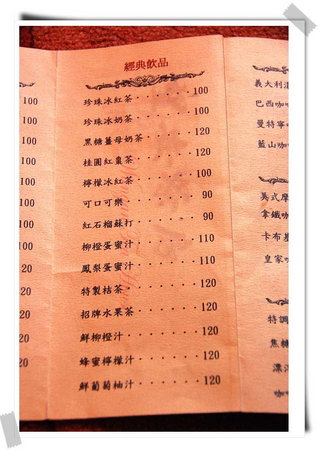 100
100
100
100
100
100
100
20
20
20
20
20
經典飲品
珍珠冰紅茶‧‧‧‧‧‧‧100
珍珠冰奶茶‧‧‧‧‧‧‧100
黑糖薑母奶茶‧‧‧‧‧‧120
桂圓紅棗茶‧‧‧‧‧‧‧120
檸檬冰紅茶‧‧‧‧‧‧‧100
可口可樂‧‧‧‧‧‧‧‧90
紅石榴蘇打‧‧‧‧‧‧‧90
柳橙蛋蜜汁‧‧‧‧‧‧‧110
鳳梨蛋蜜汁‧‧‧‧‧‧‧110
特製桔茶‧‧‧‧‧‧‧‧120
招牌水果茶‧‧‧‧‧‧‧120
鮮柳橙汁‧‧‧‧‧‧‧‧120
蜂蜜檸檬汁‧‧‧‧‧‧‧120
鮮葡萄柚汁‧‧‧‧‧‧‧120
義大利
巴西咖
曼特寧
藍山咖
美式摩
拿鐵咖
卡布
皇家咖
特調
焦糖
漂
咖